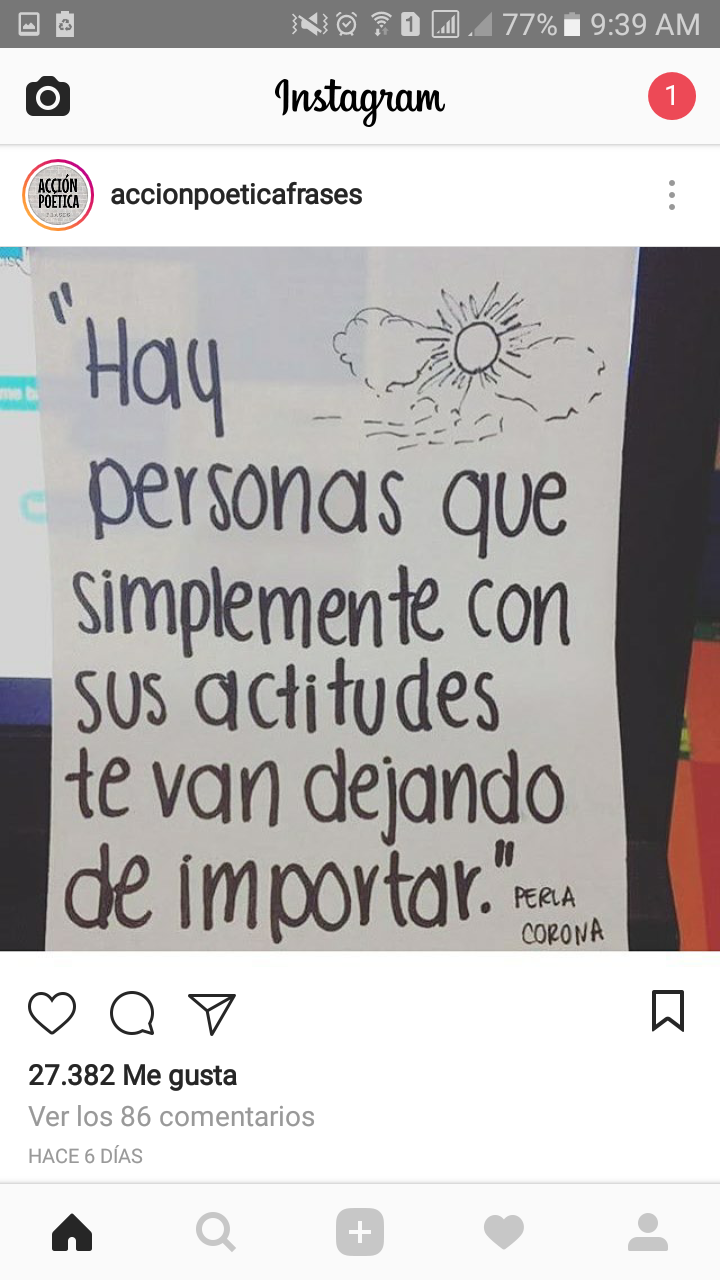 1 77% 9:39 AM
Instagram
1
ACCIÓN
POETICA
FRASES
accionpoeticafrases
"Hay
personas que
simplemente con
sus actitudes
te van dejando
de importar."
PERLA
CORONA
27.382 Me gusta
Ver los 86 comentarios
HACE 6 DÍAS